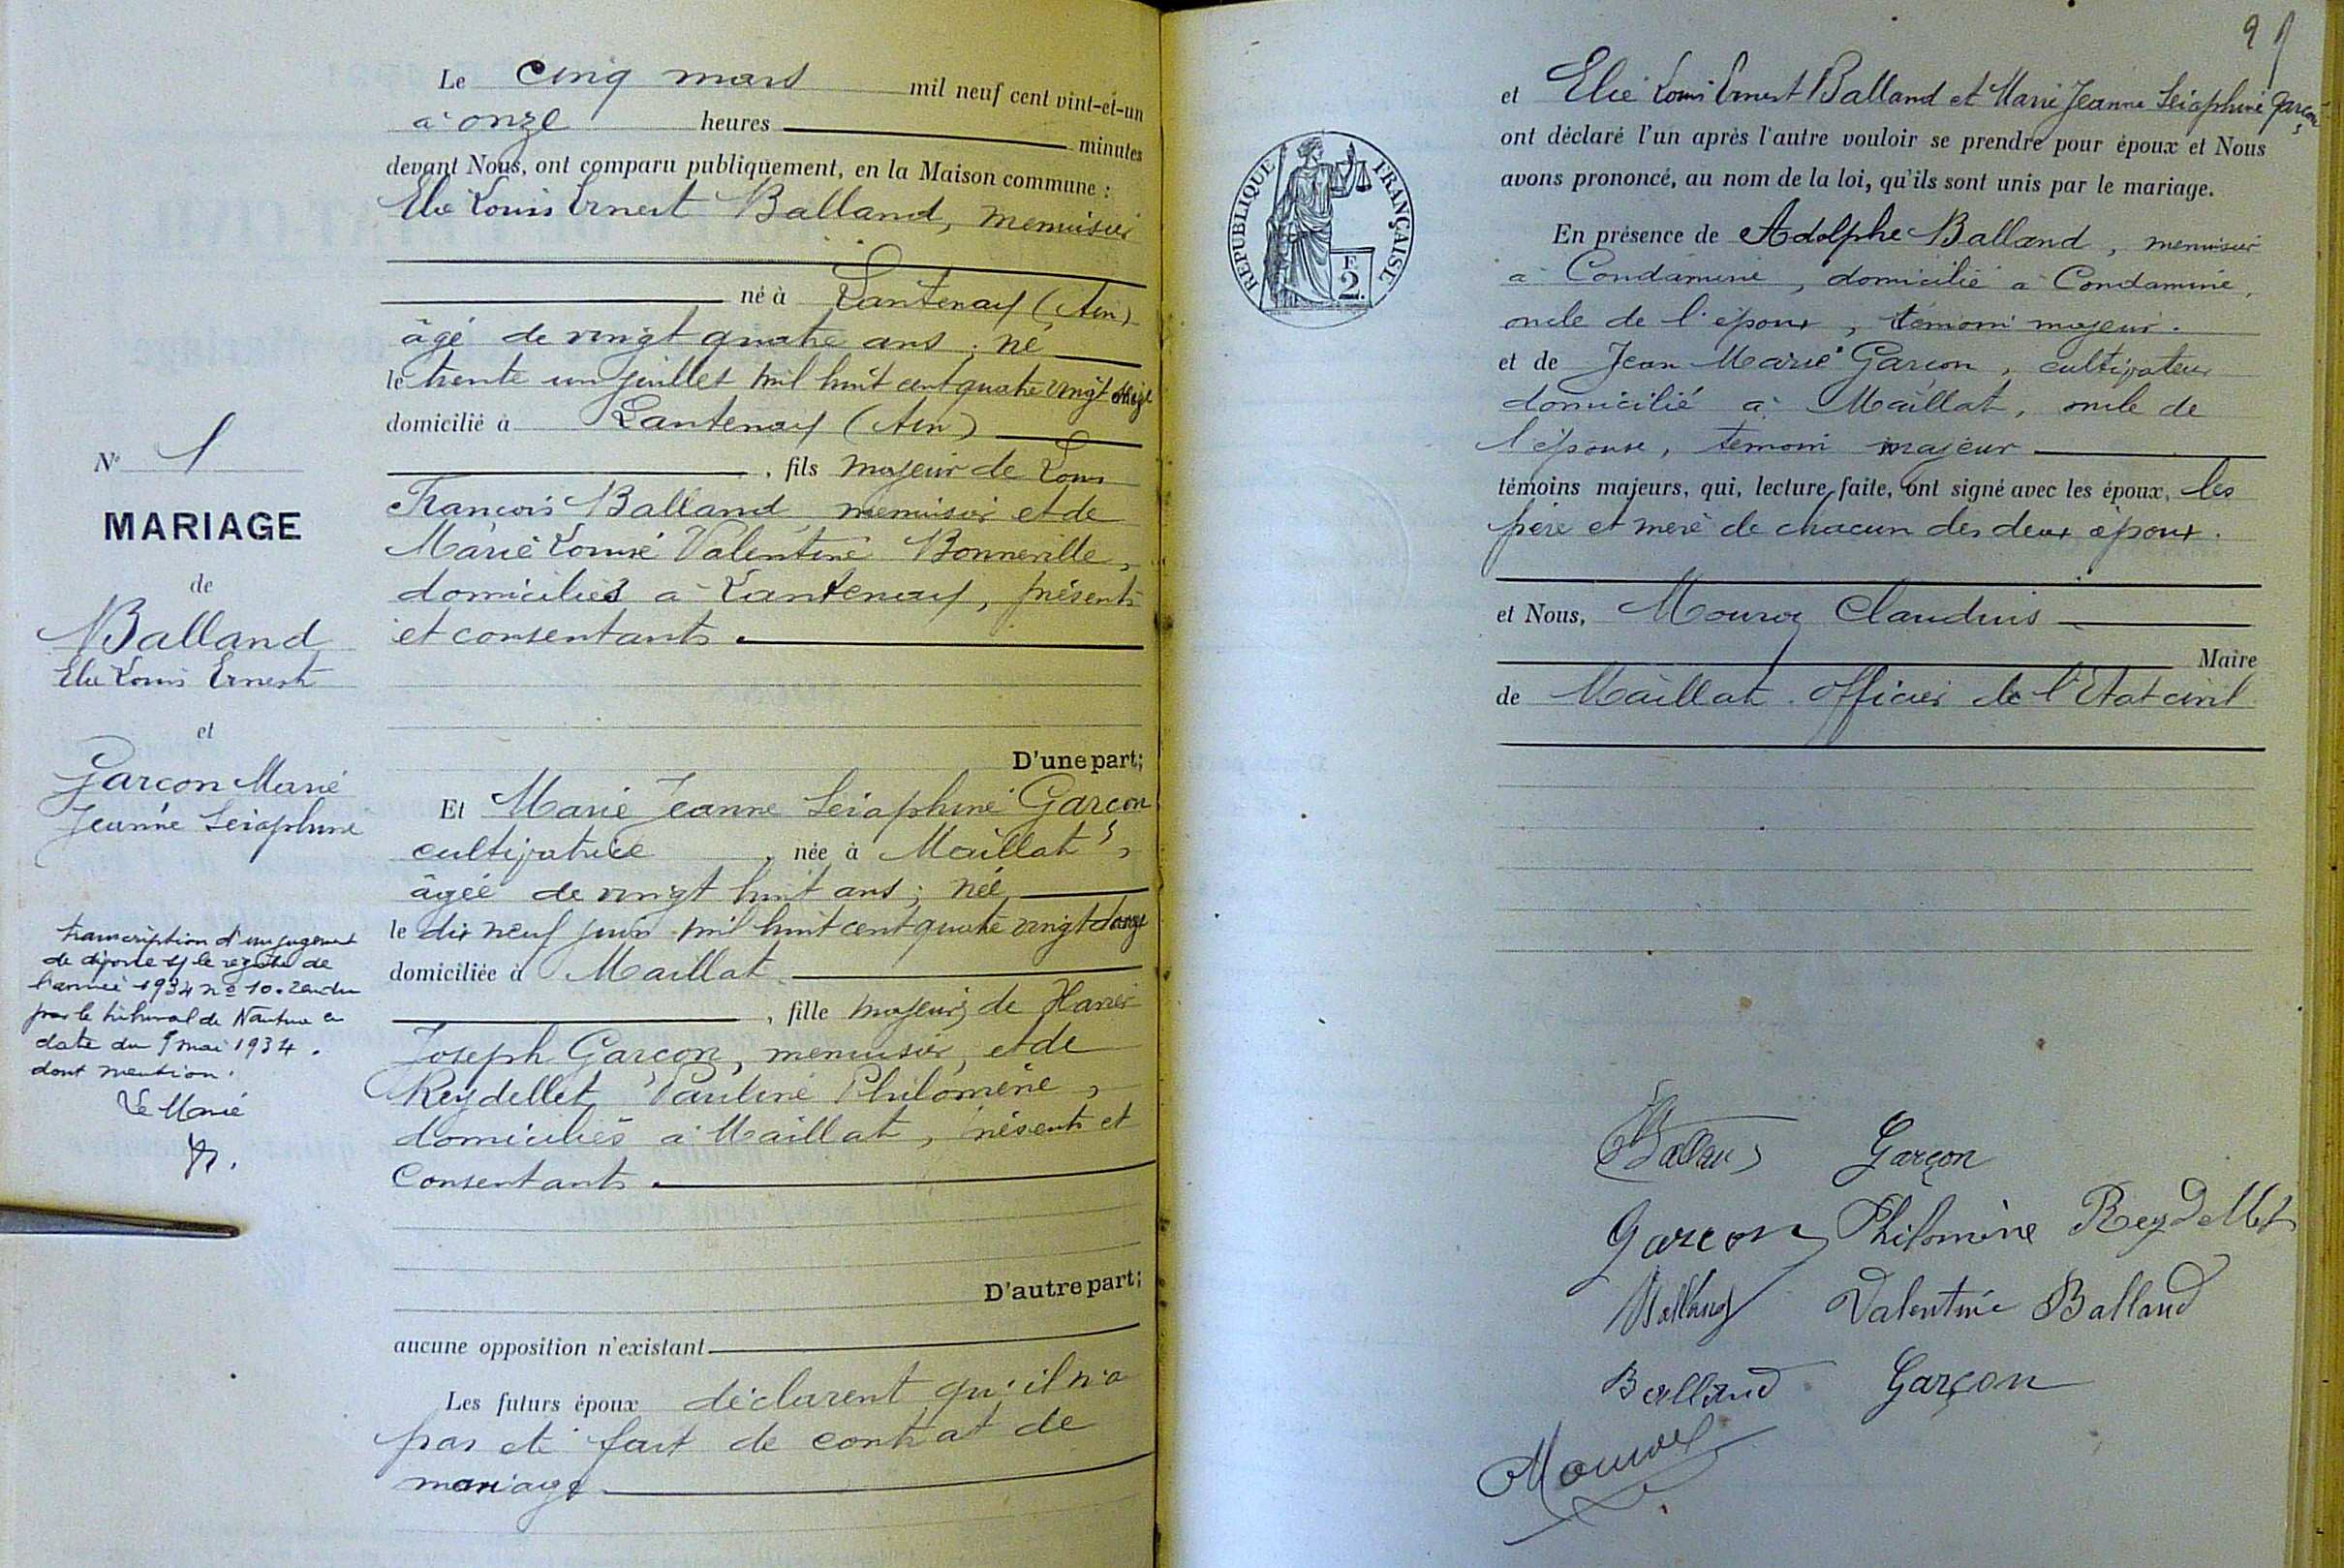 Le cinq mars mil neuf cent vint-et-un
à onze heures minutes
devant Nous, ont comparu publiquement, en la Maison commune :
Elie Louis Ernest Balland, menuisier
né à Lantenay (Ain)
âgé de vingt quatre ans ; né
le trente un juillet mil huit cent quatre vingt seize
domicilié à Lantenay (Ain)
, fils majeur de Louis
François Balland menuisier et de
Marie Louise Valentine Bonneville,
domiciliés à Lantenay, présents
et consentants.
D'une part;
Et Marie Jeanne Séraphine Garçon
cultivatrice, née à Maillat,
âgée de vingt huit ans ; née
le dix neuf juin mil huit cent quatre vingt douze
domiciliée à Maillat
, fille majeure de
Joseph Garçon, menuisier, et de
Reydellet Pauline Philomène,
domiciliés à Maillat, présents et
consentants.
D'autre part;
aucune opposition n'existant
Les futurs époux déclarent qu'il n'a
pas été fait de contrat de
mariage
N° 1
MARIAGE
de
Balland
Elie Louis Ernest
et
Garçon Marie
Jeanne Séraphine
Transcription d'un jugement
de divorce s/ le registre de
l'année 1934 n° 10. rendu
par le tribunal de Nantua en
date du mai 1934.
dont mention.
Le Maire
et Elie Louis Ernest Balland et Marie Jeanne Séraphine Garçon
ont déclaré l'un après l'autre vouloir se prendre pour époux et Nous
avons prononcé, au nom de la loi, qu'ils sont unis par le mariage.
En présence de Adolphe Balland, menuisier
à Condamine, domicilié à Condamine,
oncle de l'époux, témoin majeur.
et de Jean Marie Garçon, cultivateur
domicilié à Maillat, oncle de
l'épouse, témoin majeur
témoins majeurs, qui, lecture faite, ont signé avec les époux, les
père et mère de chacun des deux époux.
et Nous, Claudius
Maire
de Maillat. Officier de l'Etat civil
REPUBLIQUE FRANÇAISE
F
2.
Garçon
Garcon Philomène Reydellet
Balland Valentine Balland
Balland Garçon